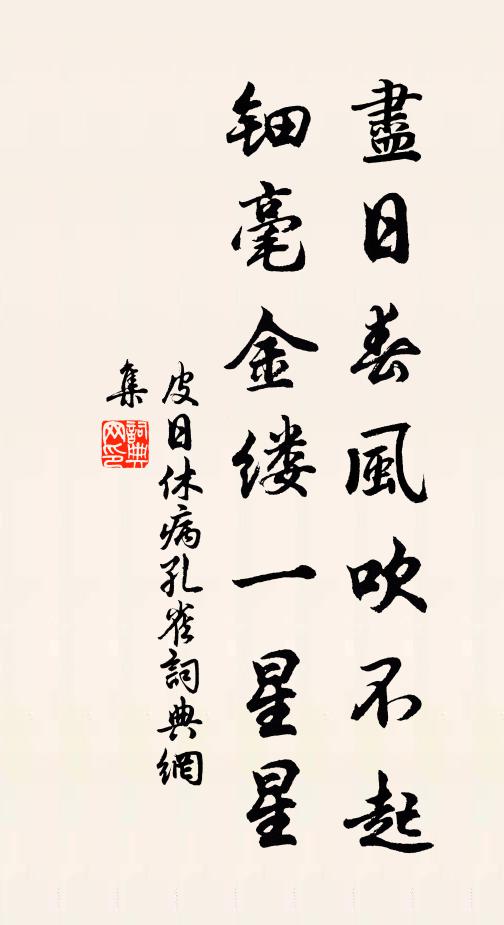 盡日春風吹不起
钿毫金缕一星星
皮日休病孔雀詞典網
集
詞典网印